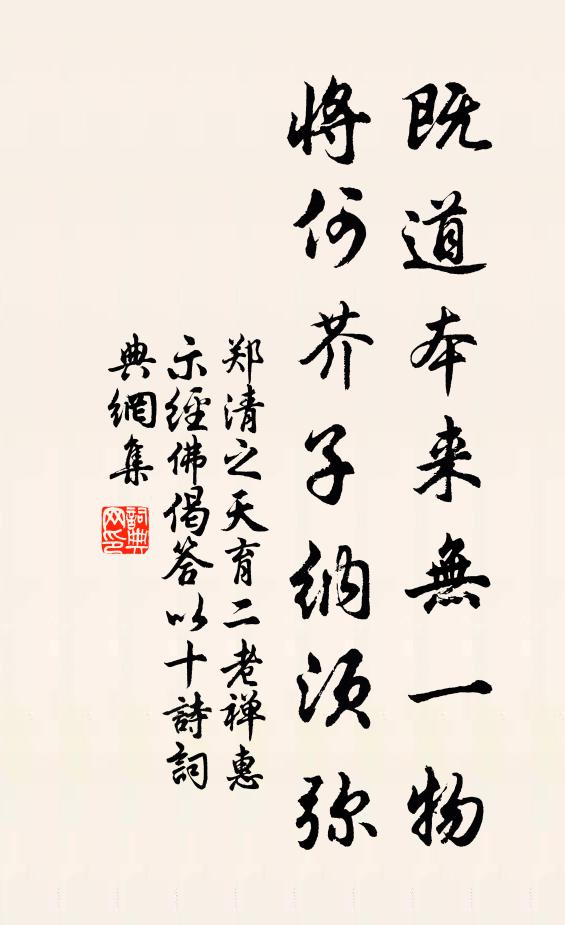 既道本来無一物
將何芥子納须弥
郑清之天育二老禅惠
示經佛偈答以十詩詞
典網集
詞典网印